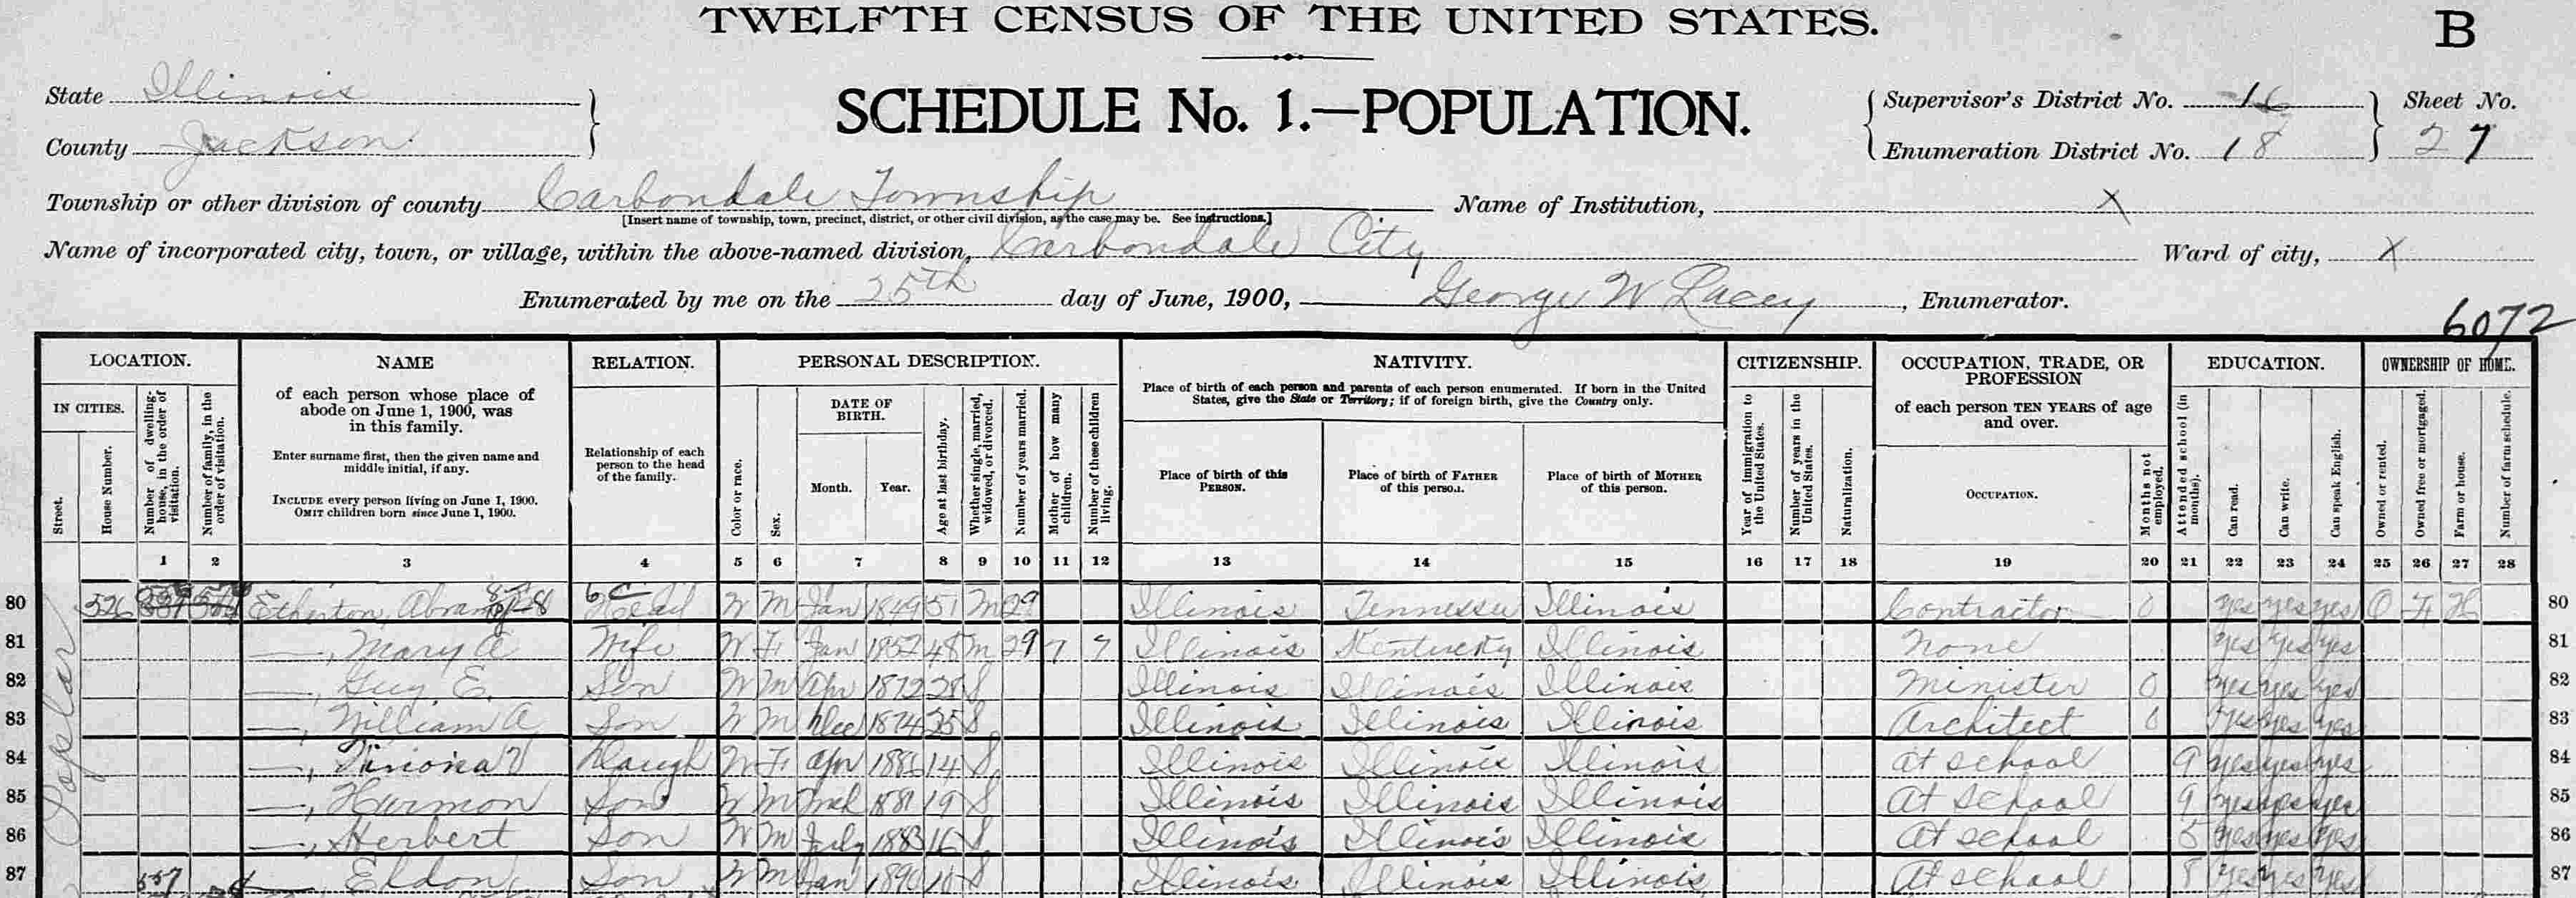 TWELFTH CENSUS OF THE UNITED STATES.
B
State Illinois
County Jackson
SCHEDULE No. 1.—POPULATION.
Supervisor's District No. 16
Enumeration District No. 18
Sheet No.
27
Township or other division of county Carbondale Township
[Insert name of township, town, precinct, district, or other civil division, as the case may be. See instructions.]
Name of Institution, X
Name of incorporated city, town, or village, within the above-named division, Carbondale City
Ward of city, X
Enumerated by me on the 25th day of June, 1900, George W Lacey, Enumerator.
6072
LOCATION.
IN CITIES.
Street.
House Number.
Number of dwelling-house, in the order of visitation.
Number of family, in the order of visitation.
NAME
of each person whose place of abode on June 1, 1900, was in this family.
Enter surname first, then the given name and middle initial, if any.
INCLUDE every person living on June 1, 1900.
OMIT children born since June 1, 1900.
RELATION.
Relationship of each person to the head of the family.
PERSONAL DESCRIPTION.
Color or race.
Sex.
DATE OF BIRTH.
Month. Year.
Age at last birthday.
Whether single, married, widowed, or divorced.
Number of years married.
Mother of how many children.
Number of these children living.
NATIVITY.
Place of birth of each person and parents of each person enumerated. If born in the United States, give the State or Territory; if of foreign birth, give the Country only.
Place of birth of this PERSON.
Place of birth of FATHER of this person.
Place of birth of MOTHER of this person.
CITIZENSHIP.
Year of immigration to the United States.
Number of years in the United States.
Naturalization.
OCCUPATION, TRADE, OR PROFESSION
of each person TEN YEARS of age and over.
OCCUPATION.
Months not employed.
EDUCATION.
Attended school (in months).
Can read.
Can write.
Can speak English.
OWNERSHIP OF HOME.
Owned or rented.
Owned free or mortgaged.
Farm or house.
Number of farm schedule.
1 2 3 4 5 6 7 8 9 10 11 12 13 14 15 16 17 18 19 20 21 22 23 24 25 26 27 28
Poplar
80 526 Etherton, Abram Head W M Jan 1849 51 M 29 Illinois Tennessee Illinois Contractor 0 yes yes yes O F H 80
81 —, Mary A Wife W F Jan 1852 48 M 29 7 7 Illinois Kentucky Illinois None yes yes yes 81
82 —, Guy E. Son W M Apr 1872 28 S Illinois Illinois Illinois Minister 0 yes yes yes 82
83 —, William A Son W M Dec 1874 25 S Illinois Illinois Illinois Architect 0 yes yes yes 83
84 —, Daugh W F Apr 1886 14 S Illinois Illinois Illinois At school 9 yes yes yes 84
85 —, Harmon Son W M Mch 1881 19 S Illinois Illinois Illinois At school 9 yes yes yes 85
86 —, Herbert Son W M July 1883 16 S Illinois Illinois Illinois At school 5 yes yes yes 86
87 557 — Eldon Son W M Jan 1890 10 S Illinois Illinois Illinois At school 8 yes yes yes 87